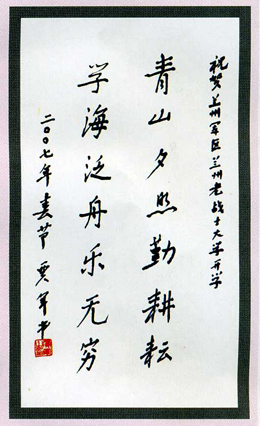 祝贺兰州军区兰州老战士大学开学
青山夕照勤耕耘
学海泛舟乐无穷
二〇〇七年春节